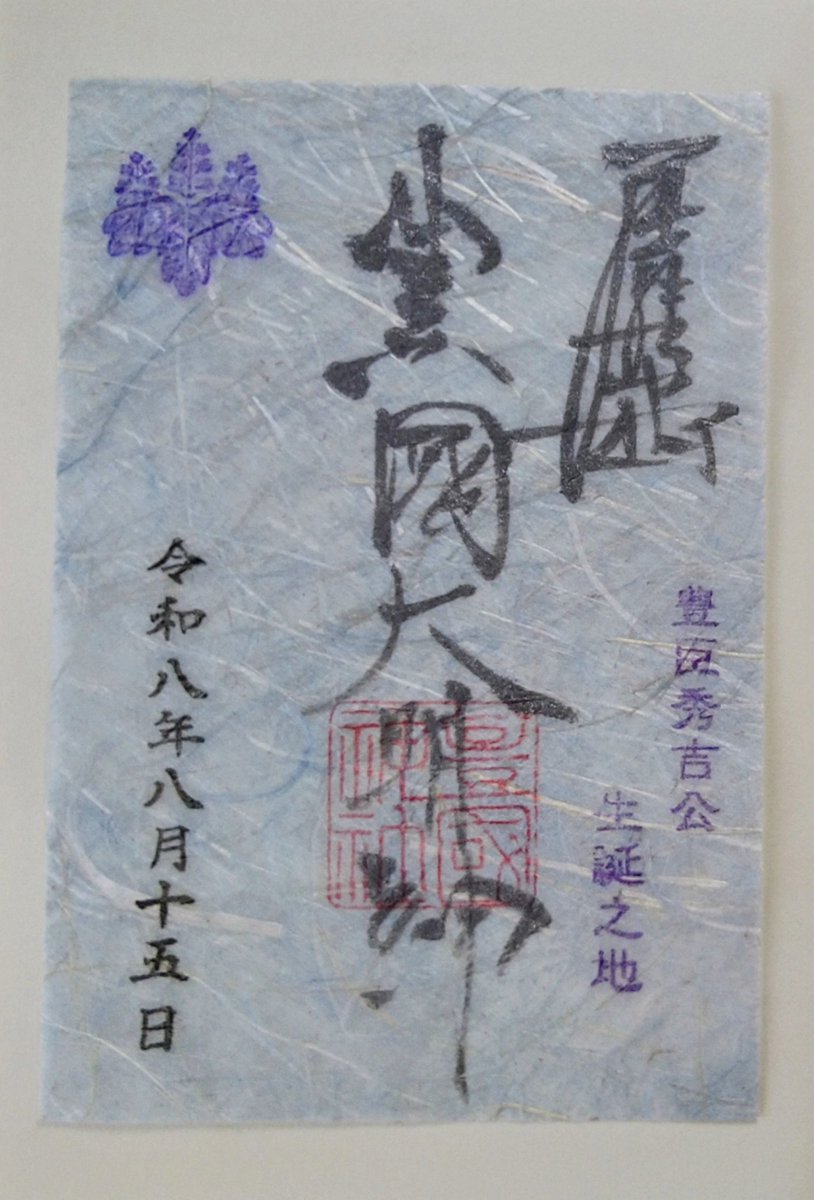 豊臣秀吉公
生誕之地
豊國大明神
豊國神社
令和八年八月十五日